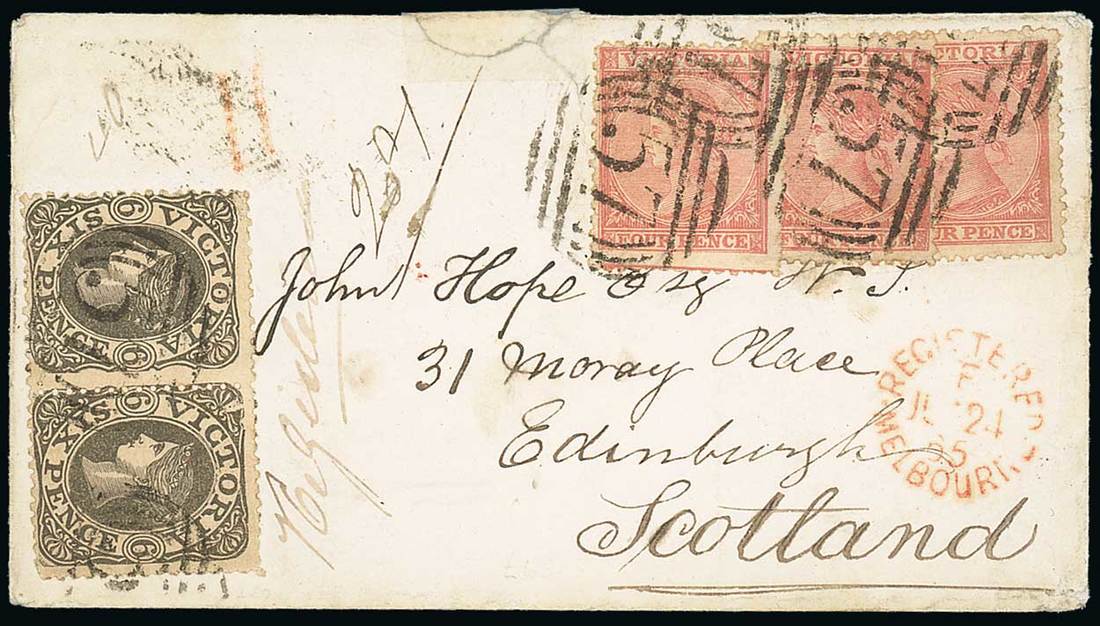 VICTORIA
FOUR PENCE
VICTORIA
VICTORIA
FOUR PENCE
VICTORIA
SIX PENCE
6
6
VICTORIA
SIX PENCE
6
6
John Hope Esq W. S.
31 Moray Place
Edinburgh
Scotland
Registered
REGISTERED
F
24
65
MELBOURNE